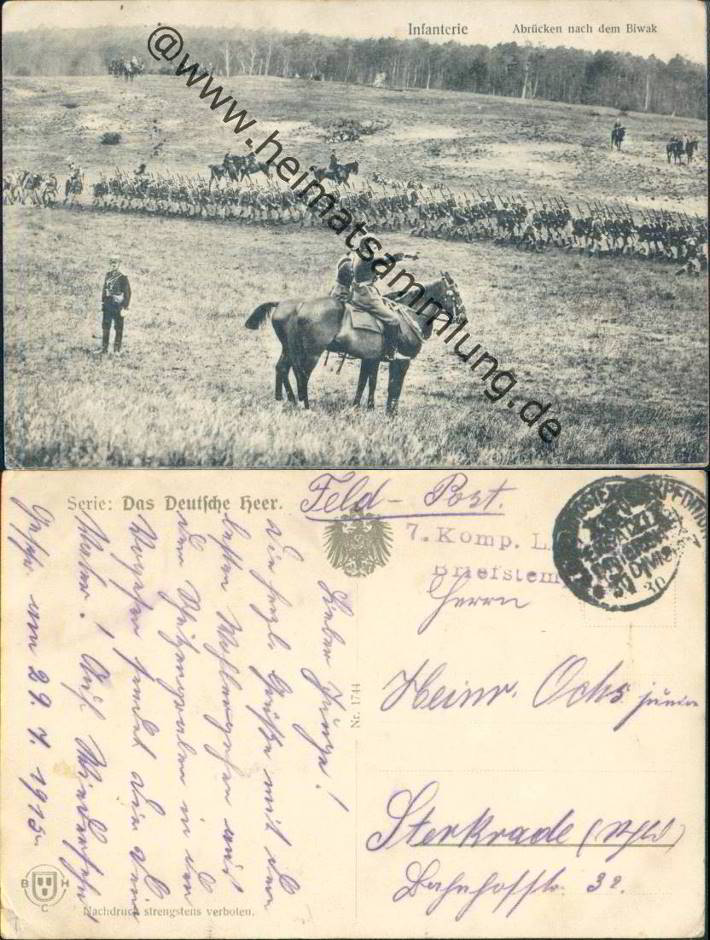 Infanterie Abrücken nach dem Biwak
@www.heimatsammlung.de
Serie: Das Deutsche Heer.
Feld-Post.
7. Komp. L.
Briefstem
Herrn
Heinr. Ochs junior
Sterkrade (Rhld)
Bahnhofstr. 32.
Lieber Junge!
Die herzl. Grüße mit dem
besten Wohlergehen aus
dem Schützengraben in den
sendet Dir Dein
Vater. Auf Wiedersehen!
29. 7. 1915.
Nr. 1744
B H C
Nachdruck strengstens verboten.